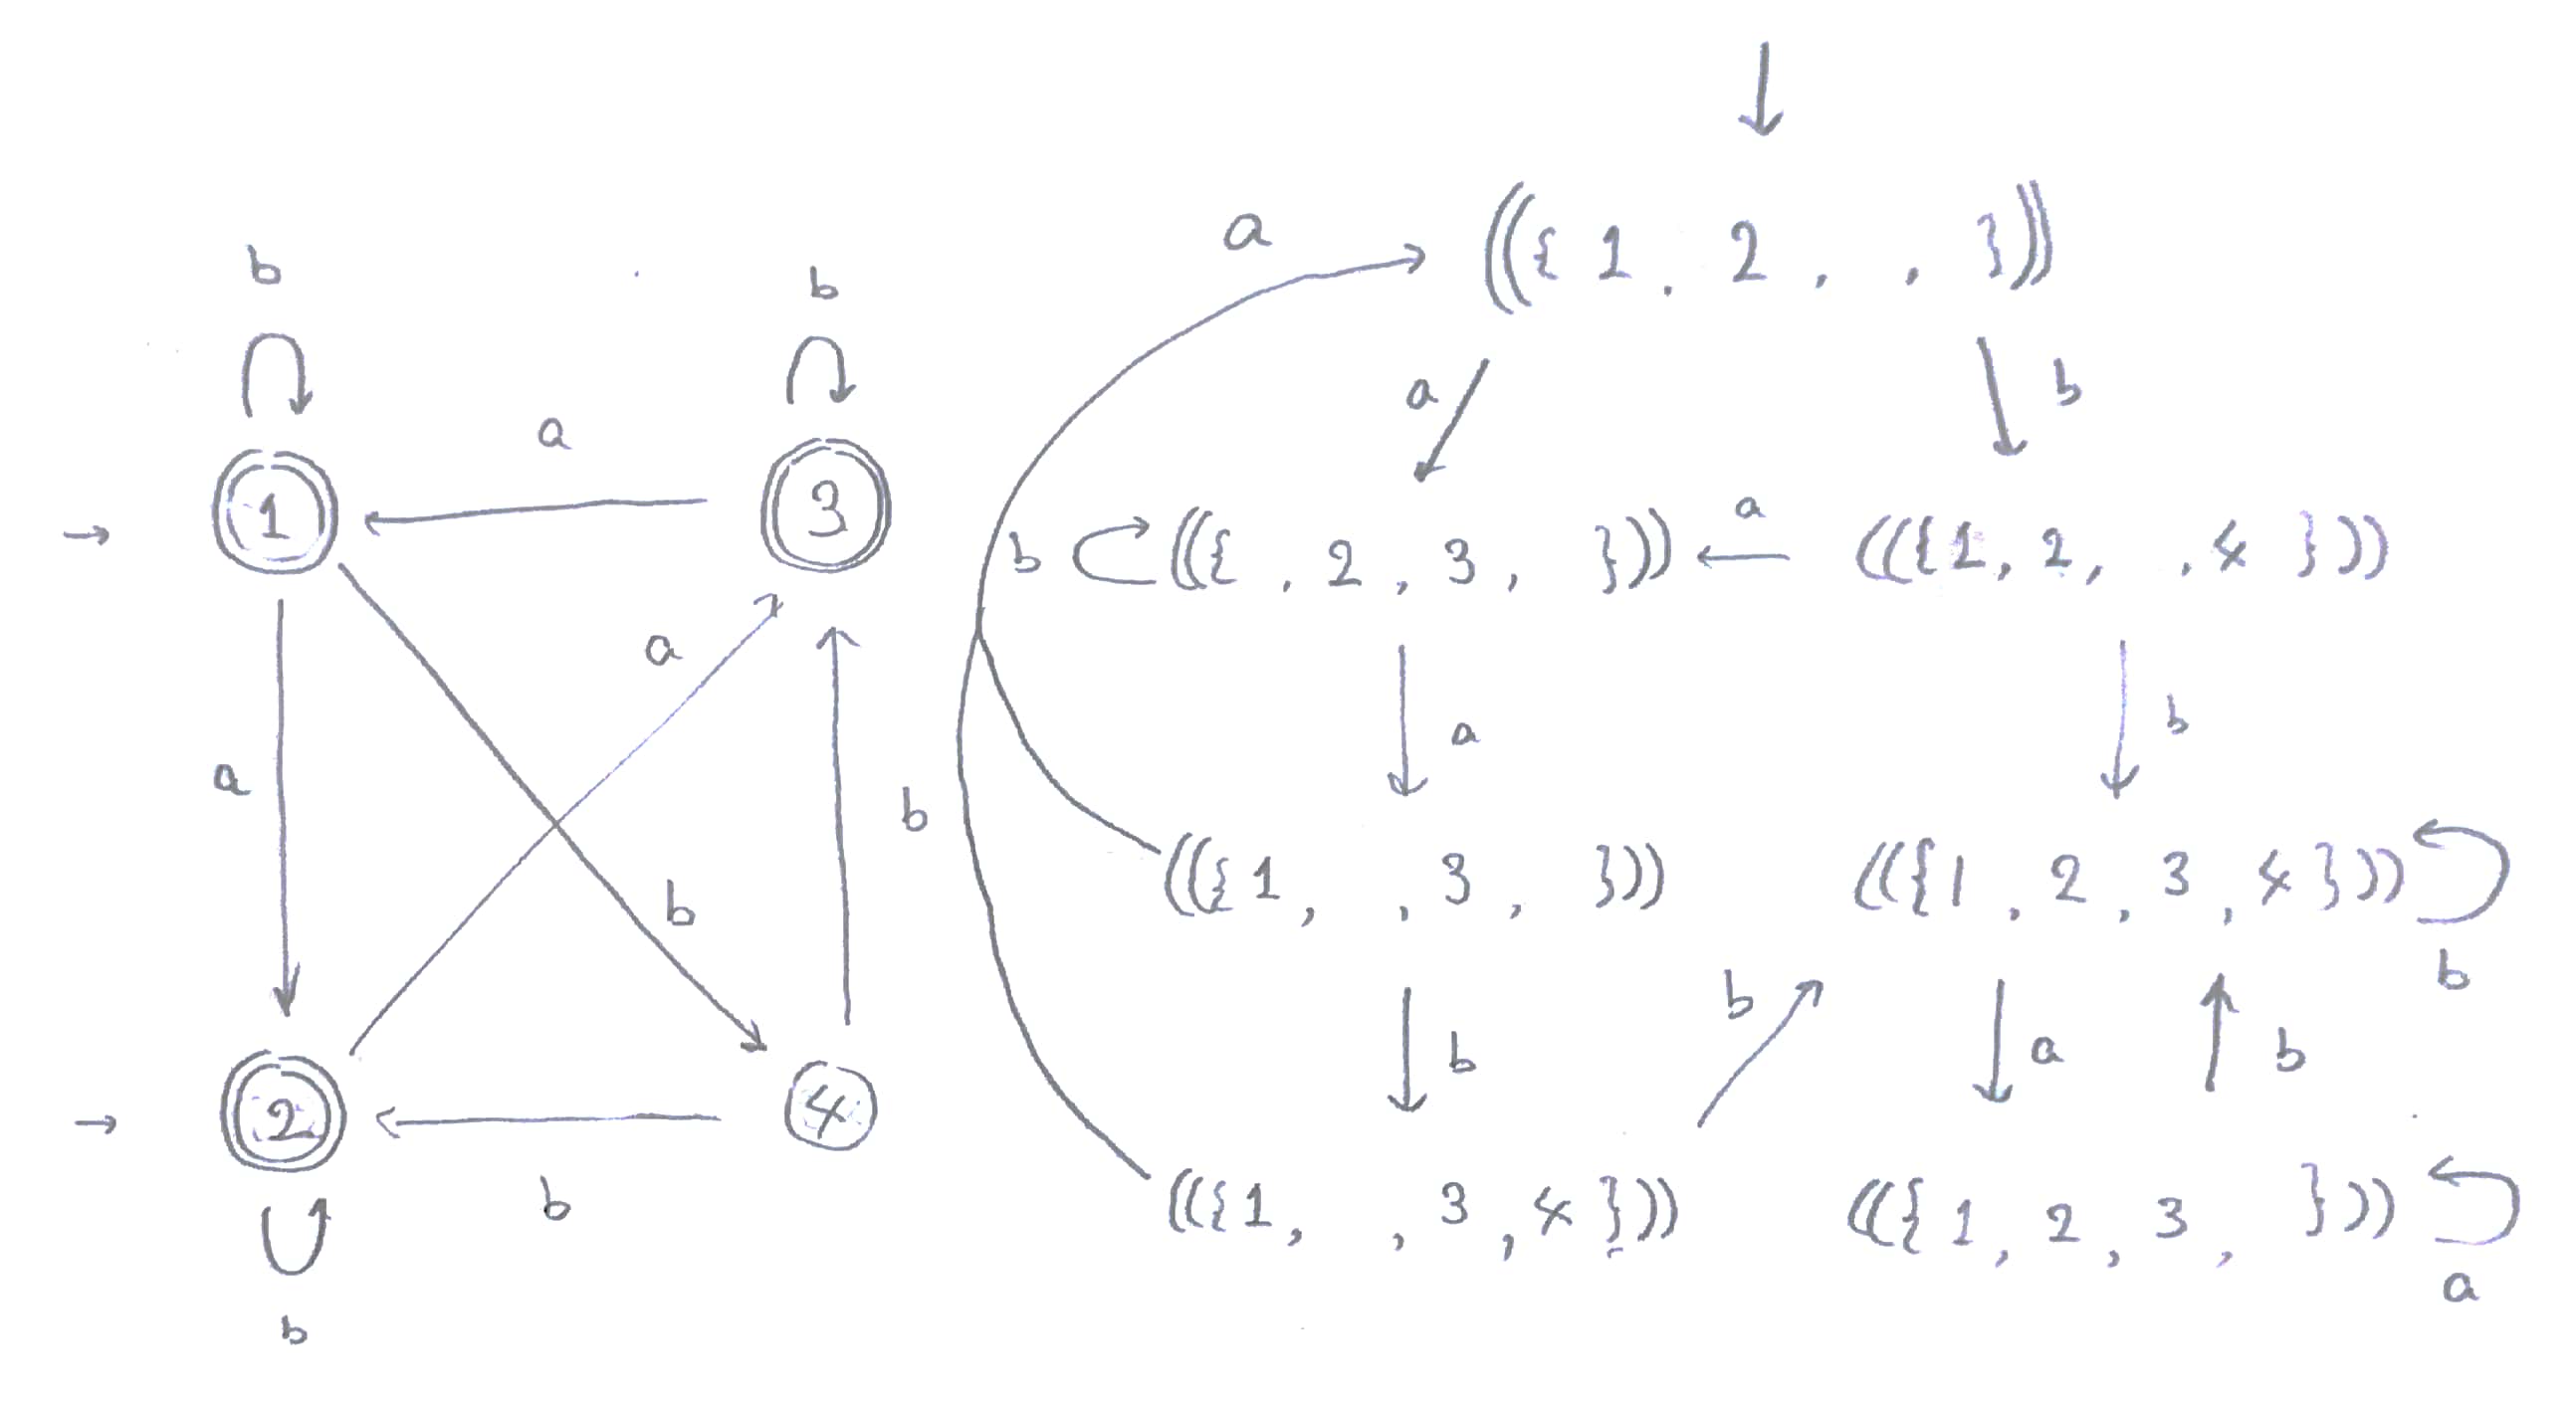 b
b
a
→ 1
3
a
a
b
b
→ 2
4
b
b
(({ 1 , 2 , , }))
a
a
b
b (({ , 2 , 3 , }))
a
(({ 1 , 2 , , 4 }))
a
b
(({ 1 , , 3 , }))
(({ 1 , 2 , 3 , 4 }))
b
b
b
a
b
(({ 1 , , 3 , 4 }))
(({ 1 , 2 , 3 , }))
a